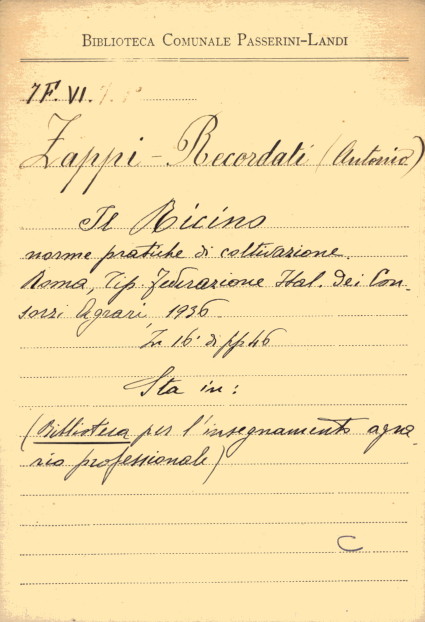 BIBLIOTECA COMUNALE PASSERINI-LANDI
7F. VI.
Zappi - Recordati (Antonio)
Il Ricino
norme pratiche di coltivazione.
Roma, Tip. Federazione Ital. dei Con-
sorzi Agrari, 1936
In 16° di pp 46
Sta in:
(Biblioteca per l'insegnamento agra-
rio professionale)
C